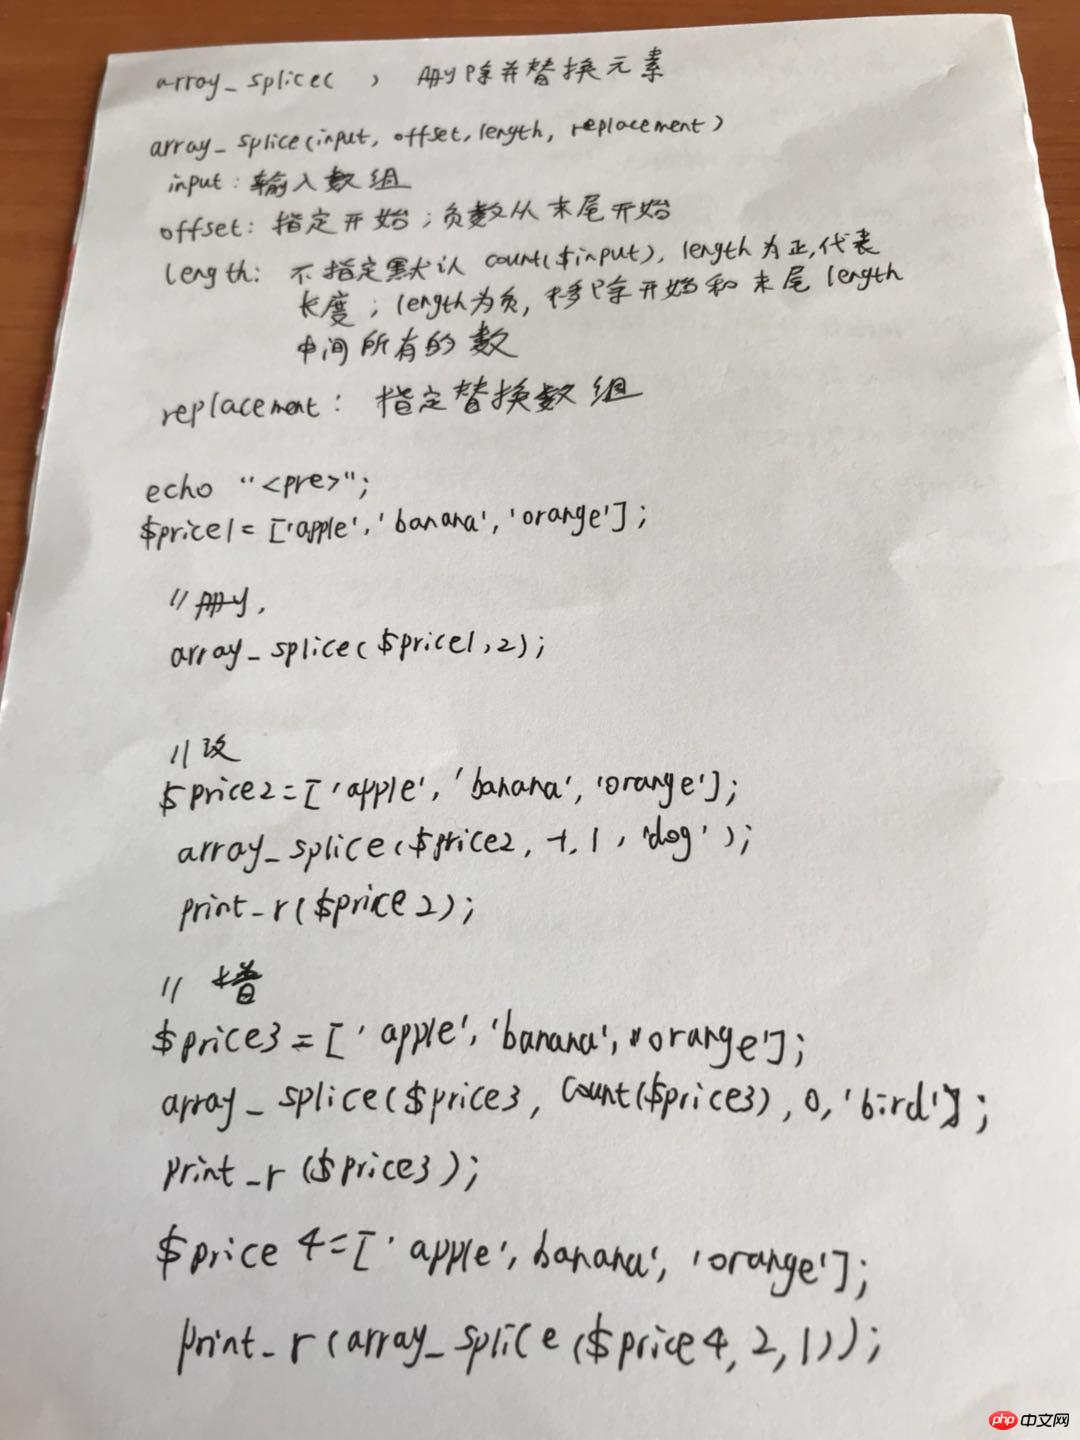 array_splice( ) 删除并替换元素
array_splice(input, offset, length, replacement)
input: 输入数组
offset: 指定开始; 负数从末尾开始
length: 不指定默认 count($input), length为正,代表
长度; length为负, 移除开始和末尾 length
中间所有的数
replacement: 指定替换数组
echo "<pre>";
$price1=['apple','banana','orange'];
//删,
array_splice($price1,2);
//改
$price2=['apple','banana','orange'];
array_splice($price2,-1,1,'dog');
print_r($price2);
//增
$price3=['apple','banana','orange'];
array_splice($price3, count($price3),0,'bird');
print_r($price3);
$price4=['apple',banana','orange'];
print_r(array_splice($price4,2,1));
php 中文网